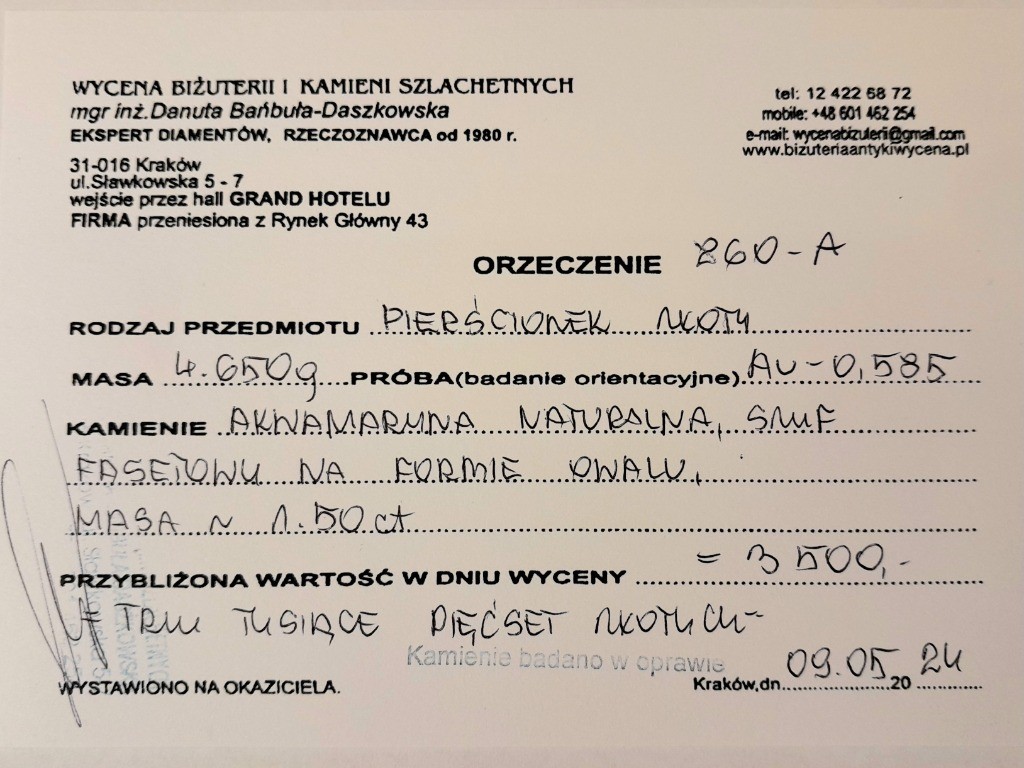 WYCENA BIŻUTERII I KAMIENI SZLACHETNYCH
mgr inż.Danuta Bańbuła-Daszkowska
EKSPERT DIAMENTÓW, RZECZOZNAWCA od 1980 r.
31-016 Kraków
ul.Sławkowska 5 - 7
wejście przez hall GRAND HOTELU
FIRMA przeniesiona z Rynek Główny 43
tel: 12 422 68 72
mobile: +48 601 462 254
e-mail: wycenabizuterii@gmail.com
www.bizuteriaantykiwycena.pl
ORZECZENIE 260-A
RODZAJ PRZEDMIOTU PIERŚCIONEK ZŁOTY
MASA 4.650g PRÓBA(badanie orientacyjne) Au-0,585
KAMIENIE AKWAMARYNA NATURALNA, SZLIF
FASETOWY NA FORMIE OWALU,
MASA ~ 1.50 ct
PRZYBLIŻONA WARTOŚĆ W DNIU WYCENY = 3 500,-
# TRZY TYSIĄCE PIĘĆSET ZŁOTYCH-
Kamienie badano w oprawie
WYSTAWIONO NA OKAZICIELA.
Kraków,dn. 09.05 20 24